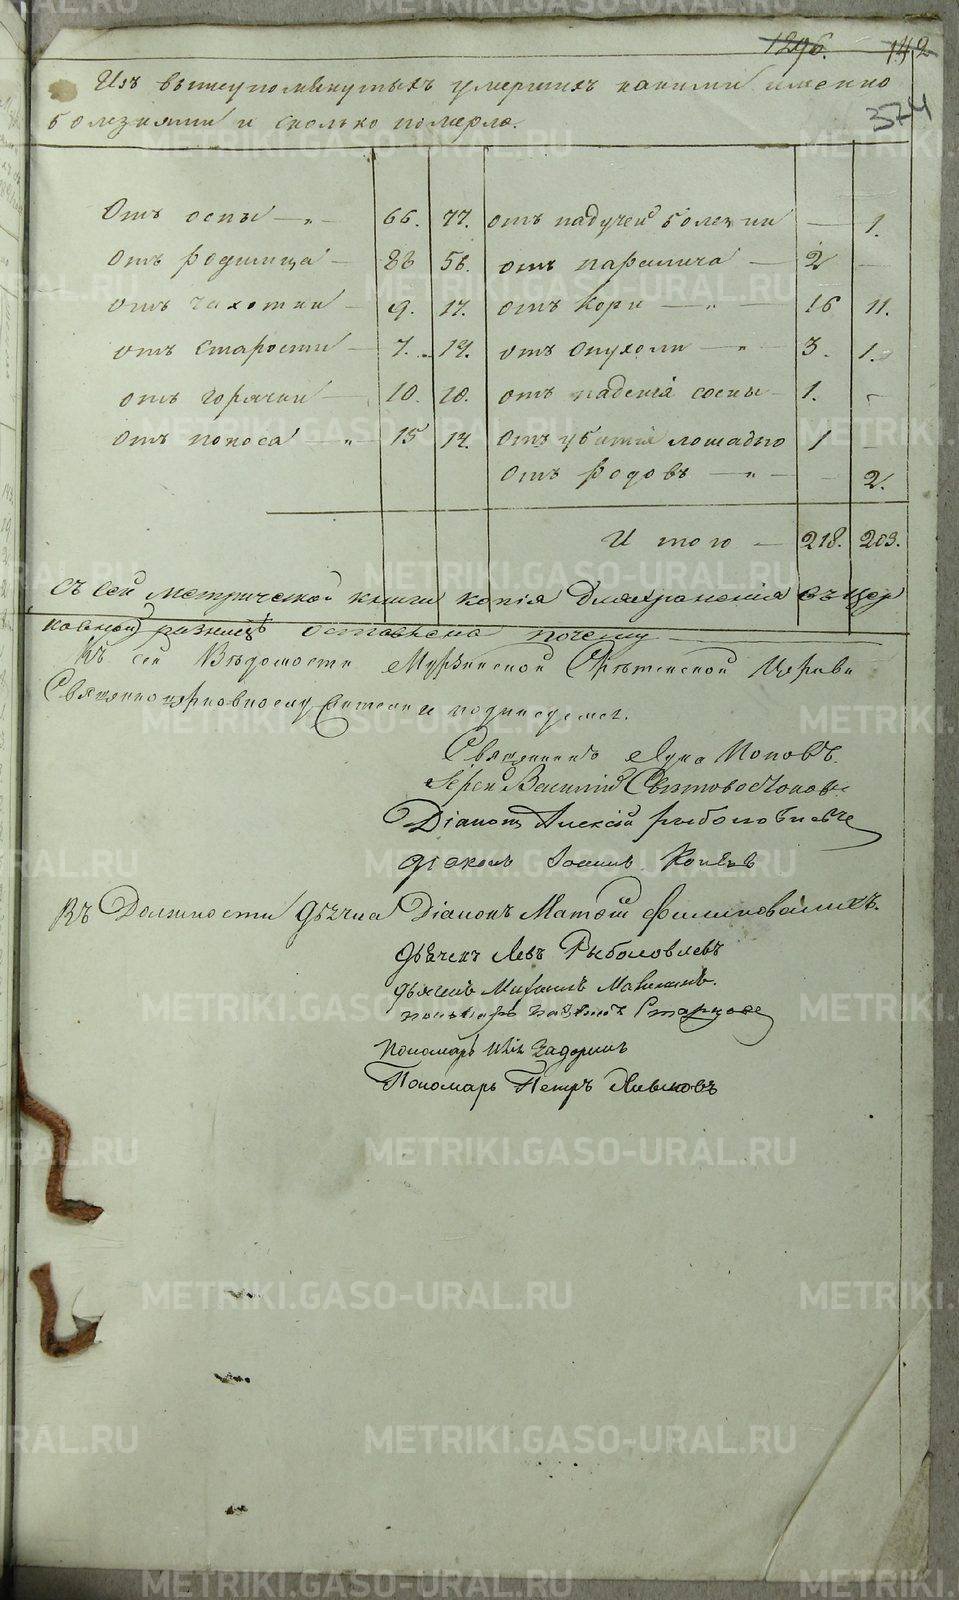 1296. 142
374
Изъ вышеупомянутыхъ умершихъ какими именно
болезнями и сколько померло.
Отъ оспы — „ — 66. 77. отъ падучей болезни — 1.
отъ родимца — 88 56. отъ паралича — 2 —
отъ чахотки — 9. 17. отъ Кори — „ — 16 11.
отъ старости — 7. 14. отъ Опухоли — „ — 3. 1.
отъ горячки — 10. 10. отъ падения сосны — 1. —
отъ поноса — „ — 15 14. отъ убитія лошадью 1 —
отъ Родовъ — „ — — 2.
И того — 218. 203.
Съ сей метрической книги копія для храненія въ Цер
ковной ризницѣ оставлена почему
Къ сей Вѣдомости Мурзинской Срѣтенской Церкви
Священноцерковнослужители и подписуемся.
Священникъ Лука Поповъ.
Іерей Василій
Діаконъ Алексій Рыболовлевъ
Діаконъ Іоаннъ
Въ Должности дьячка Діаконъ Матѳій
дьячекъ Левъ Рыболовлевъ
дьячекъ Михаилъ
пономарь Старцовъ
Пономарь Задоринъ
Пономарь Петръ
METRIKI.GASO-URAL.RU